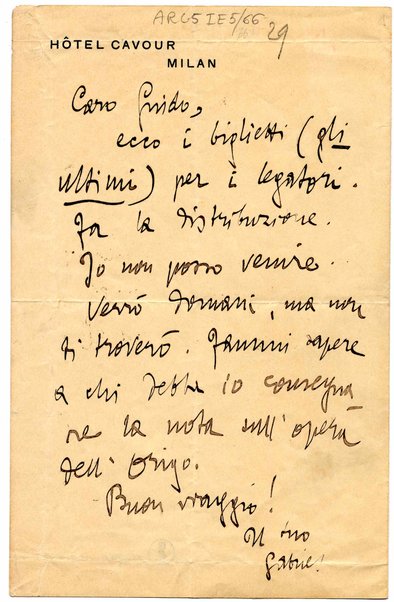 ARC5 IE5/66
29
HÔTEL CAVOUR
MILAN
Caro Guido,
ecco i biglietti (gli
ultimi) per i legatori.
Fa la distribuzione.
Io non posso venire.
Verrò domani, ma non
ti troverò. Fammi sapere
a chi debba io consegna
re la nota sull'opera
dell'Origo.
Buon viaggio!
Il tuo
Gabriel